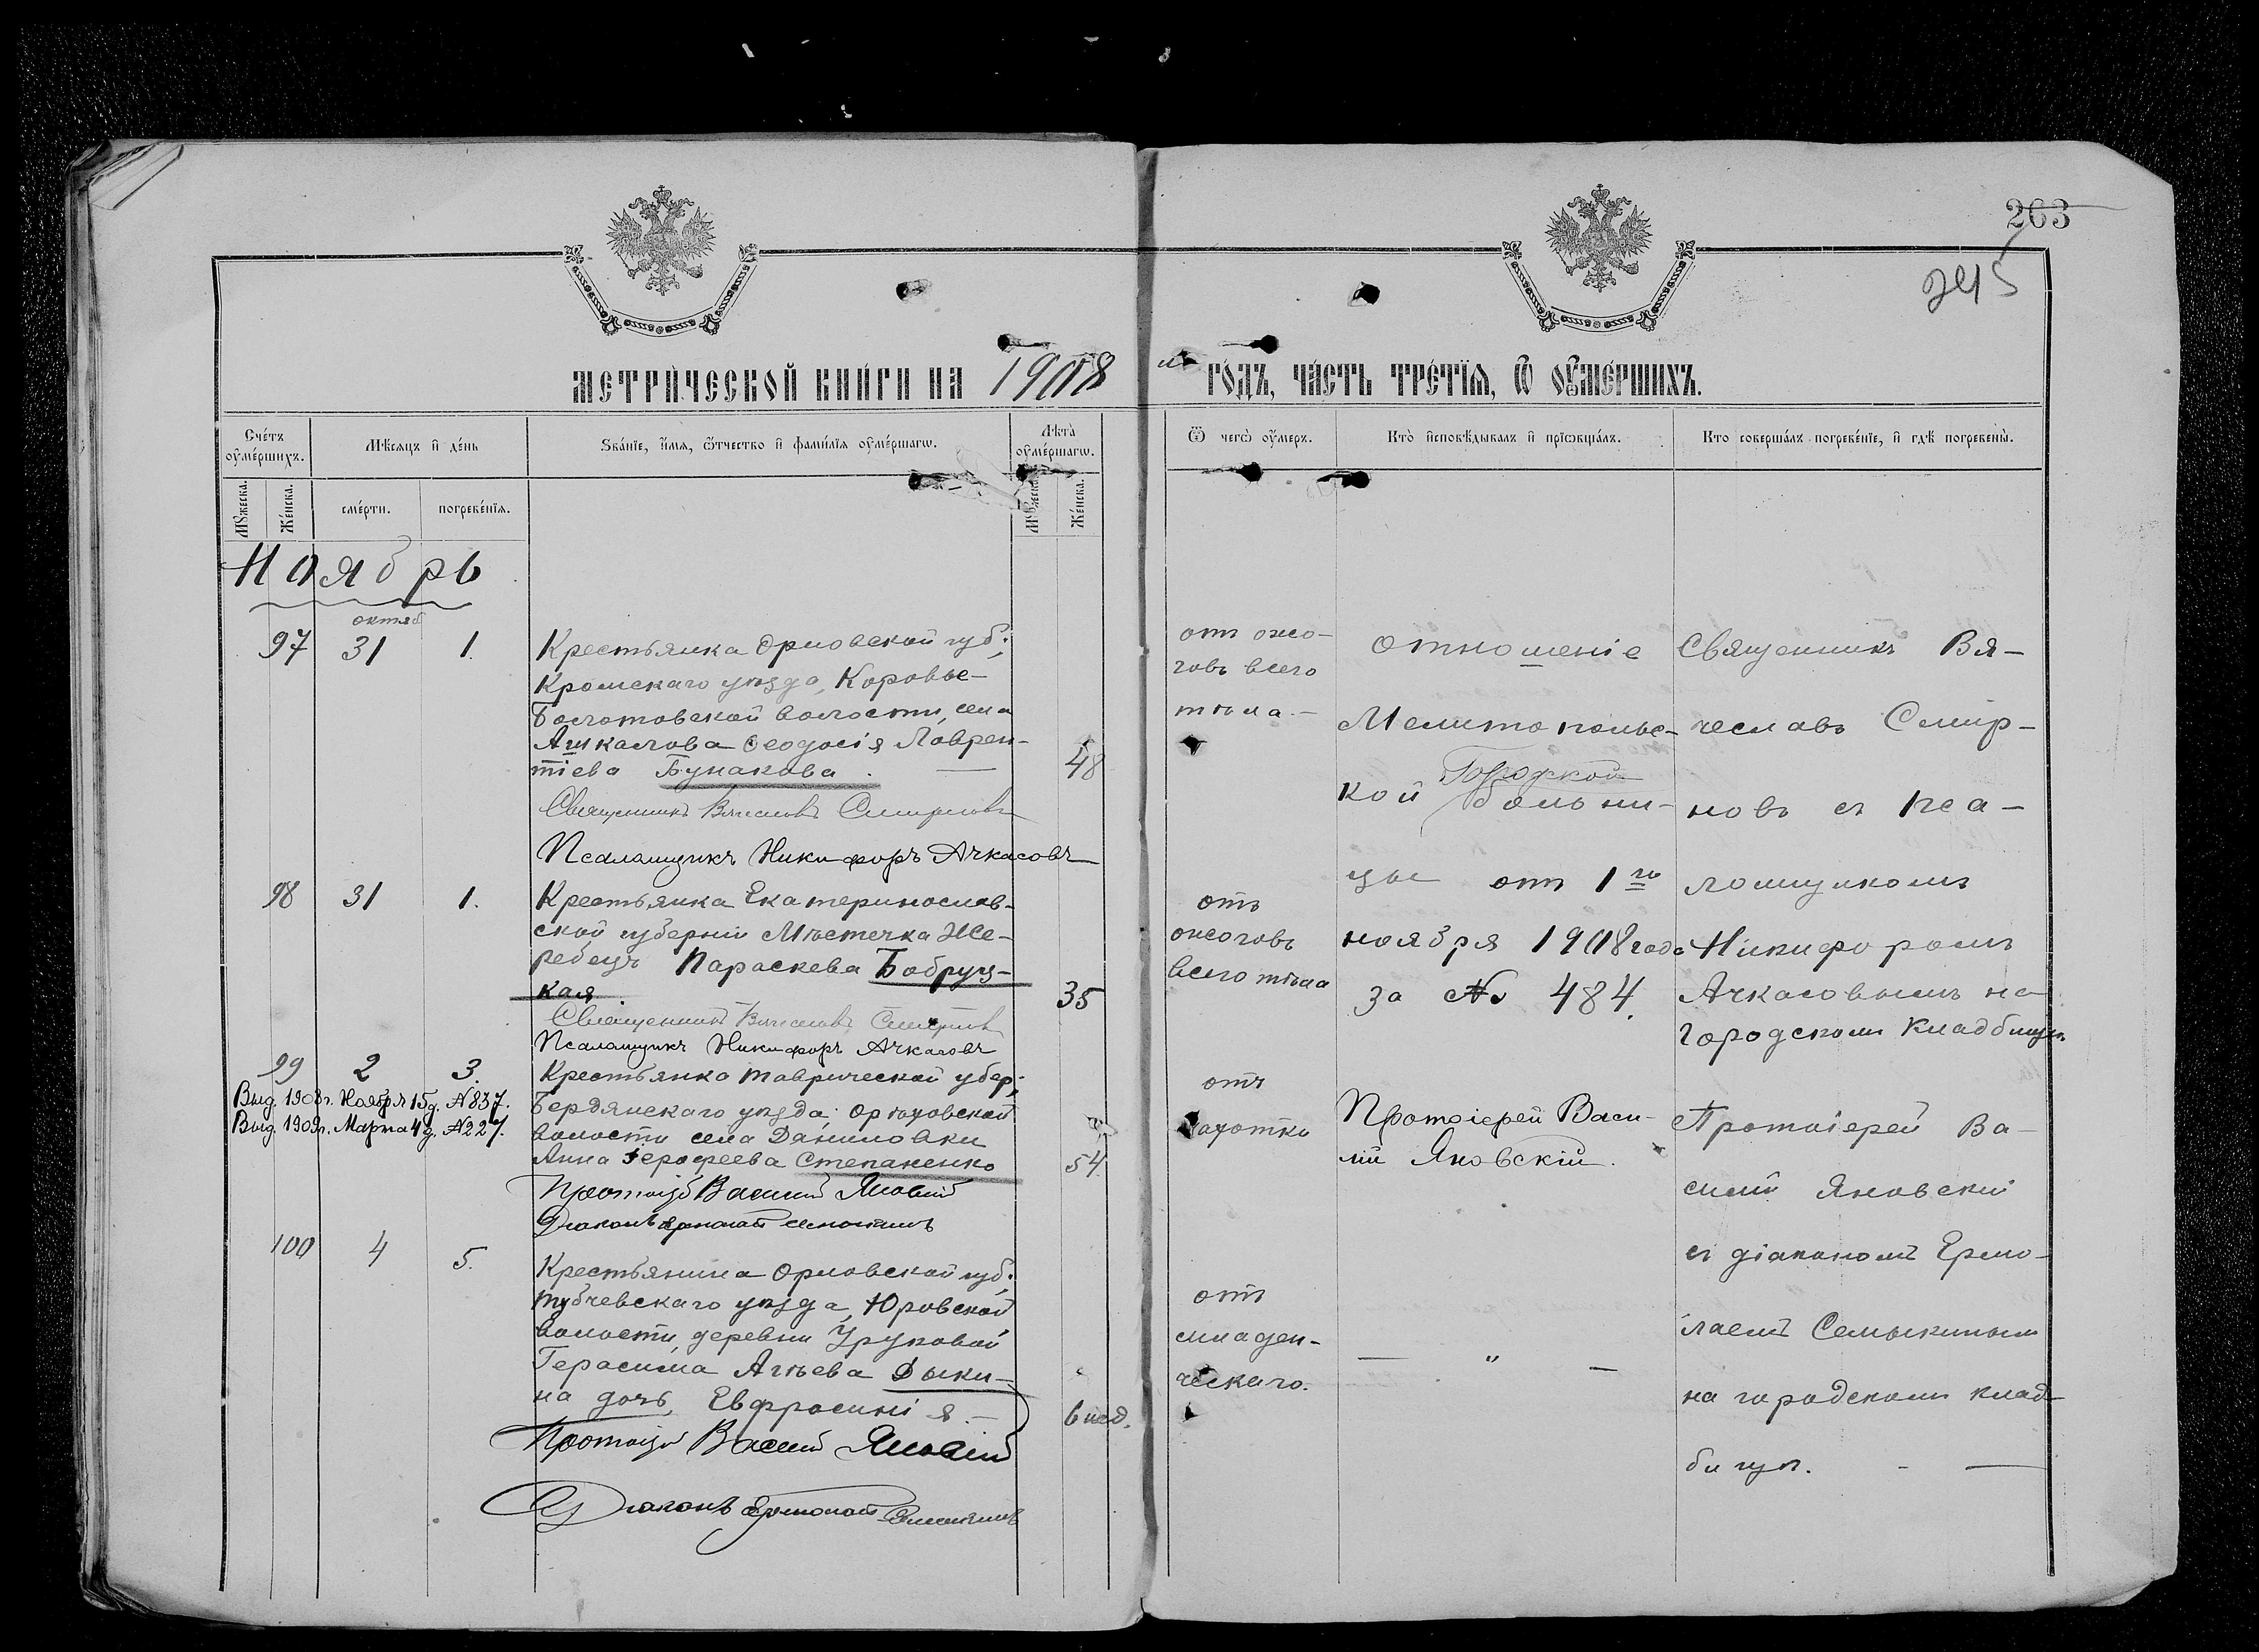 263
245
МЕТРИЧЕСКОЙ КНИГИ НА 1908 й ГОДЪ, ЧАСТЬ ТРЕТІѦ, Ѿ ОУМЕРШИХЪ.
Счетъ оумершихъ.
Мѣсяцъ и день
Званіе, имя, ѿтчество и фамилія оумершагѡ.
Лѣта оумершагѡ.
Ѿ чегѡ оумеръ.
Кто исповѣдывалъ и пріѡбщалъ.
Кто совершалъ погребеніе, и гдѣ погребены.
Мужеска.
Женска.
смерти.
погребенія.
Мужеска.
Женска.
Ноябрь
октяб
97 31 1.
Крестьянка Орловской губ.;
Кромскаго уѣзда, Коровье-
Болотовской волости, села
Ашкалова Ѳеодосія Лаврен-
тіева Бунакова.
48
Священникъ Вячеславъ Смирновъ
Псаломщикъ Никифоръ Ачкасовъ
от ожо-
говъ всего
тѣла.
отношеніе
Мелитопольс-
Городской
кой больни-
цы от 1го
ноября 1908 года
за № 484.
Священникъ Вя-
чеславъ Смир-
новъ съ пса-
ломщикомъ
Никифоромъ
Ачкасовымъ на
городскомъ кладбищѣ.
98 31 1.
Крестьянка Екатеринослав-
ской губерніи Мѣстечка Же-
ребецъ Параскева Бобруц-
кая.
35
Священникъ Вячеславъ Смирновъ
Псаломщикъ Никифоръ Ачкасовъ
отъ
ожоговъ
всего тѣла
99 2 3.
Выд. 1908 г. Ноября 15 д. №837.
Выд. 1909 г. Марта 4 д. №227.
Крестьянка Таврической губер;
Бердянскаго уѣзда, Орѣховской
волости села Даниловки
Анна Іерофеева Степаненко
54
Протоіер Василій Яновскій
Діаконъ Ермолай Семыкинъ
отъ
чахотки
Протоіерей Васи-
лій Яновскій.
Протоіерей Ва-
силій Яновскій
съ діакономъ Ермо-
лаемъ Семыкинымъ
на городскомъ клад-
бищѣ.
100 4 5.
Крестьянина Орловской губ.
Трубчевскаго уѣзда, Юровской
волости, деревни
Герасима Дыки-
на дочь, Евфросинія.
6 нед.
Протоіер Василій Яновскій
Діаконъ Ермолай Семыкинъ
отъ
младен-
ческаго.
— " —